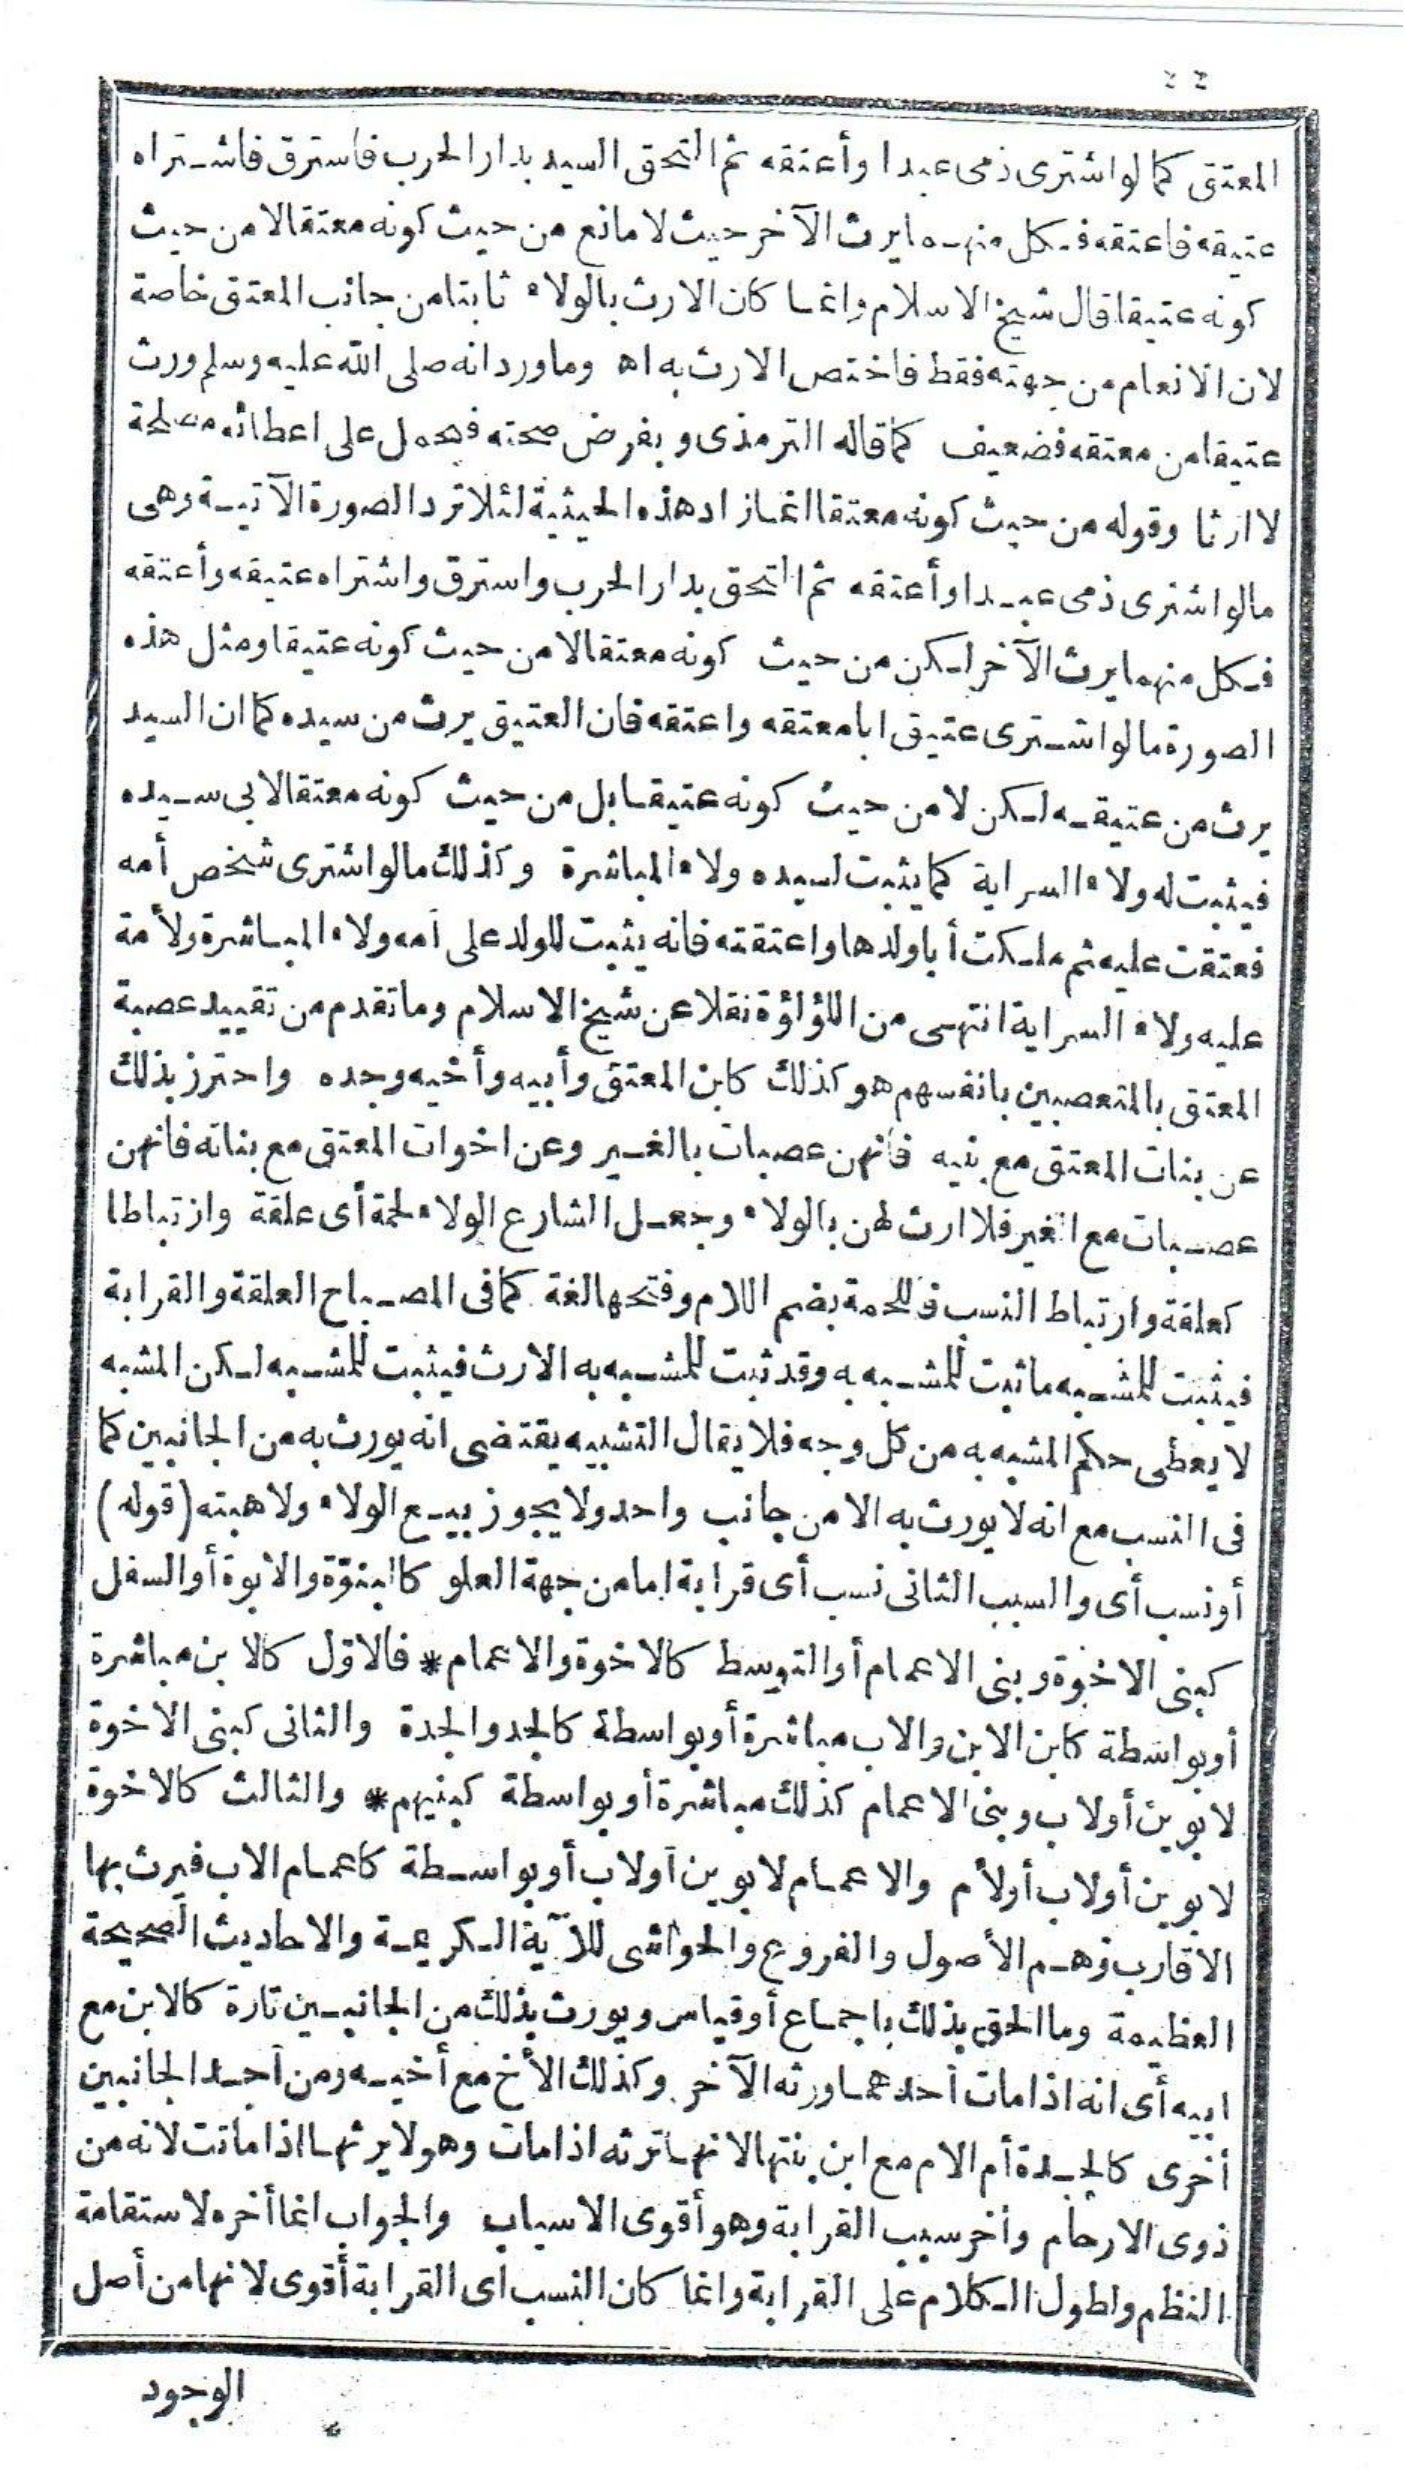 المعتق كما لو اشترى ذمى عبدا وأعتقه ثم التحق السيد بدار الحرب فاسترق فاشتراه
عتيقه فاعتقه فكل منهما يرث الآخر حيث لا مانع من حيث كونه معتقا لا من حيث
كونه عتيقا قال شيخ الاسلام وانما كان الارث بالولاء ثابتا من جانب المعتق خاصة
لان الانعام من جهته فقط فاختص الارث به اه وما ورد انه صلى الله عليه وسلم ورث
عتيقا من معتقه فضعيف كما قاله الترمذى وبفرض صحته فمحمول على اعطائه مصلحة
لا ارثا وقوله من حيث كونه معتقا انما زاد هذه الحيثية لئلا ترد الصورة الآتية وهى
ما لو اشترى ذمى عبدا وأعتقه ثم التحق بدار الحرب واسترق واشتراه عتيقه وأعتقه
فكل منهما يرث الآخر لكن من حيث كونه معتقا لا من حيث كونه عتيقا ومثل هذه
الصورة ما لو اشترى عتيق ابا معتقه واعتقه فان العتيق يرث من سيده كما ان السيد
يرث من عتيقه لكن لا من حيث كونه عتيقا بل من حيث كونه معتقا لابى سيده
فيثبت له ولاء السراية كما يثبت لسيده ولاء المباشرة وكذلك ما لو اشترى شخص أمه
فعتقت عليه ثم ملكت أبا ولدها واعتقته فانه يثبت للولد على أمه ولاء المباشرة ولأمة
عليه ولاء السراية انتهى من اللؤلؤة نقلا عن شيخ الاسلام وما تقدم من تقييد عصبة
المعتق بالمتعصبين بانفسهم هو كذلك كابن المعتق وأبيه وأخيه وجده واحترز بذلك
عن بنات المعتق مع بنيه فانهن عصبات بالغير وعن اخوات المعتق مع بناته فانهن
عصبات مع الغير فلا ارث لهن بالولاء وجعل الشارع الولاء لحمة أى علقة وارتباطا
كعلقة وارتباط النسب فاللحمة بضم اللام وفتحها لغة كما فى المصباح العلقة والقرابة
فيثبت للمشبه ما ثبت للمشبه به وقد ثبت للمشبه به الارث فيثبت للمشبه لكن المشبه
لا يعطى حكم المشبه به من كل وجه فلا يقال التشبيه يقتضى انه يورث به من الجانبين كما
فى النسب مع انه لا يورث به الا من جانب واحد ولا يجوز بيع الولاء ولا هبته (قوله)
أو نسب أى والسبب الثانى نسب أى قرابة اما من جهة العلو كالبنوّة والابوة أو السفل
كبنى الاخوة وبنى الاعمام أو التوسط كالاخوة والاعمام* فالاوّل كالابن مباشرة
أو بواسطة كابن الابن والاب مباشرة أو بواسطة كالجد والجدة والثانى كبنى الاخوة
لابوين أو لاب وبنى الاعمام كذلك مباشرة أو بواسطة كبنيهم* والثالث كالاخوة
لابوين أو لاب أو لأم والاعمام لابوين أو لاب أو بواسطة كاعمام الاب فيرث بها
الاقارب وهم الأصول والفروع والحواشى للآية الكريمة والاحاديث الصحيحة
العظيمة وما الحق بذلك باجماع أو قياس ويورث بذلك من الجانبين تارة كالابن مع
ابيه أى انه اذا مات أحدهما ورثه الآخر وكذلك الأخ مع أخيه ومن أحد الجانبين
أخرى كالجدة أم الام مع ابن بنتها لانها ترثه اذا مات وهو لا يرثها اذا ماتت لانه من
ذوى الارحام وأخر سبب القرابة وهو أقوى الاسباب والجواب انما أخره لاستقامة
النظم ولطول الكلام على القرابة وانما كان النسب أى القرابة أقوى لانها من أصل
الوجود